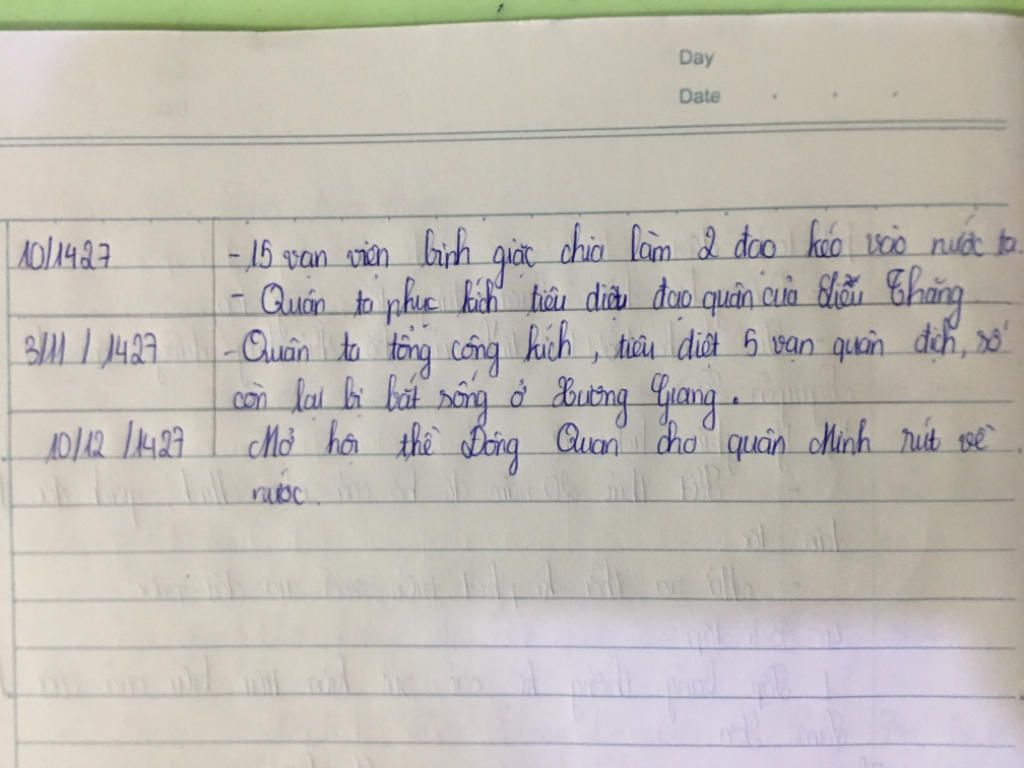 Day
Date . . .
10/1427 - 15 vạn viện binh giặc chia làm 2 đạo kéo vào nước ta.
- Quân ta phục kích tiêu diệt đạo quân của Liễu Thăng
3/11/1427 - Quân ta tổng công kích, tiêu diệt 5 vạn quân địch, số
còn lại bị bắt sống ở Xương Giang.
10/12/1427 Mở hội thề Đông Quan cho quân Minh rút về
nước.